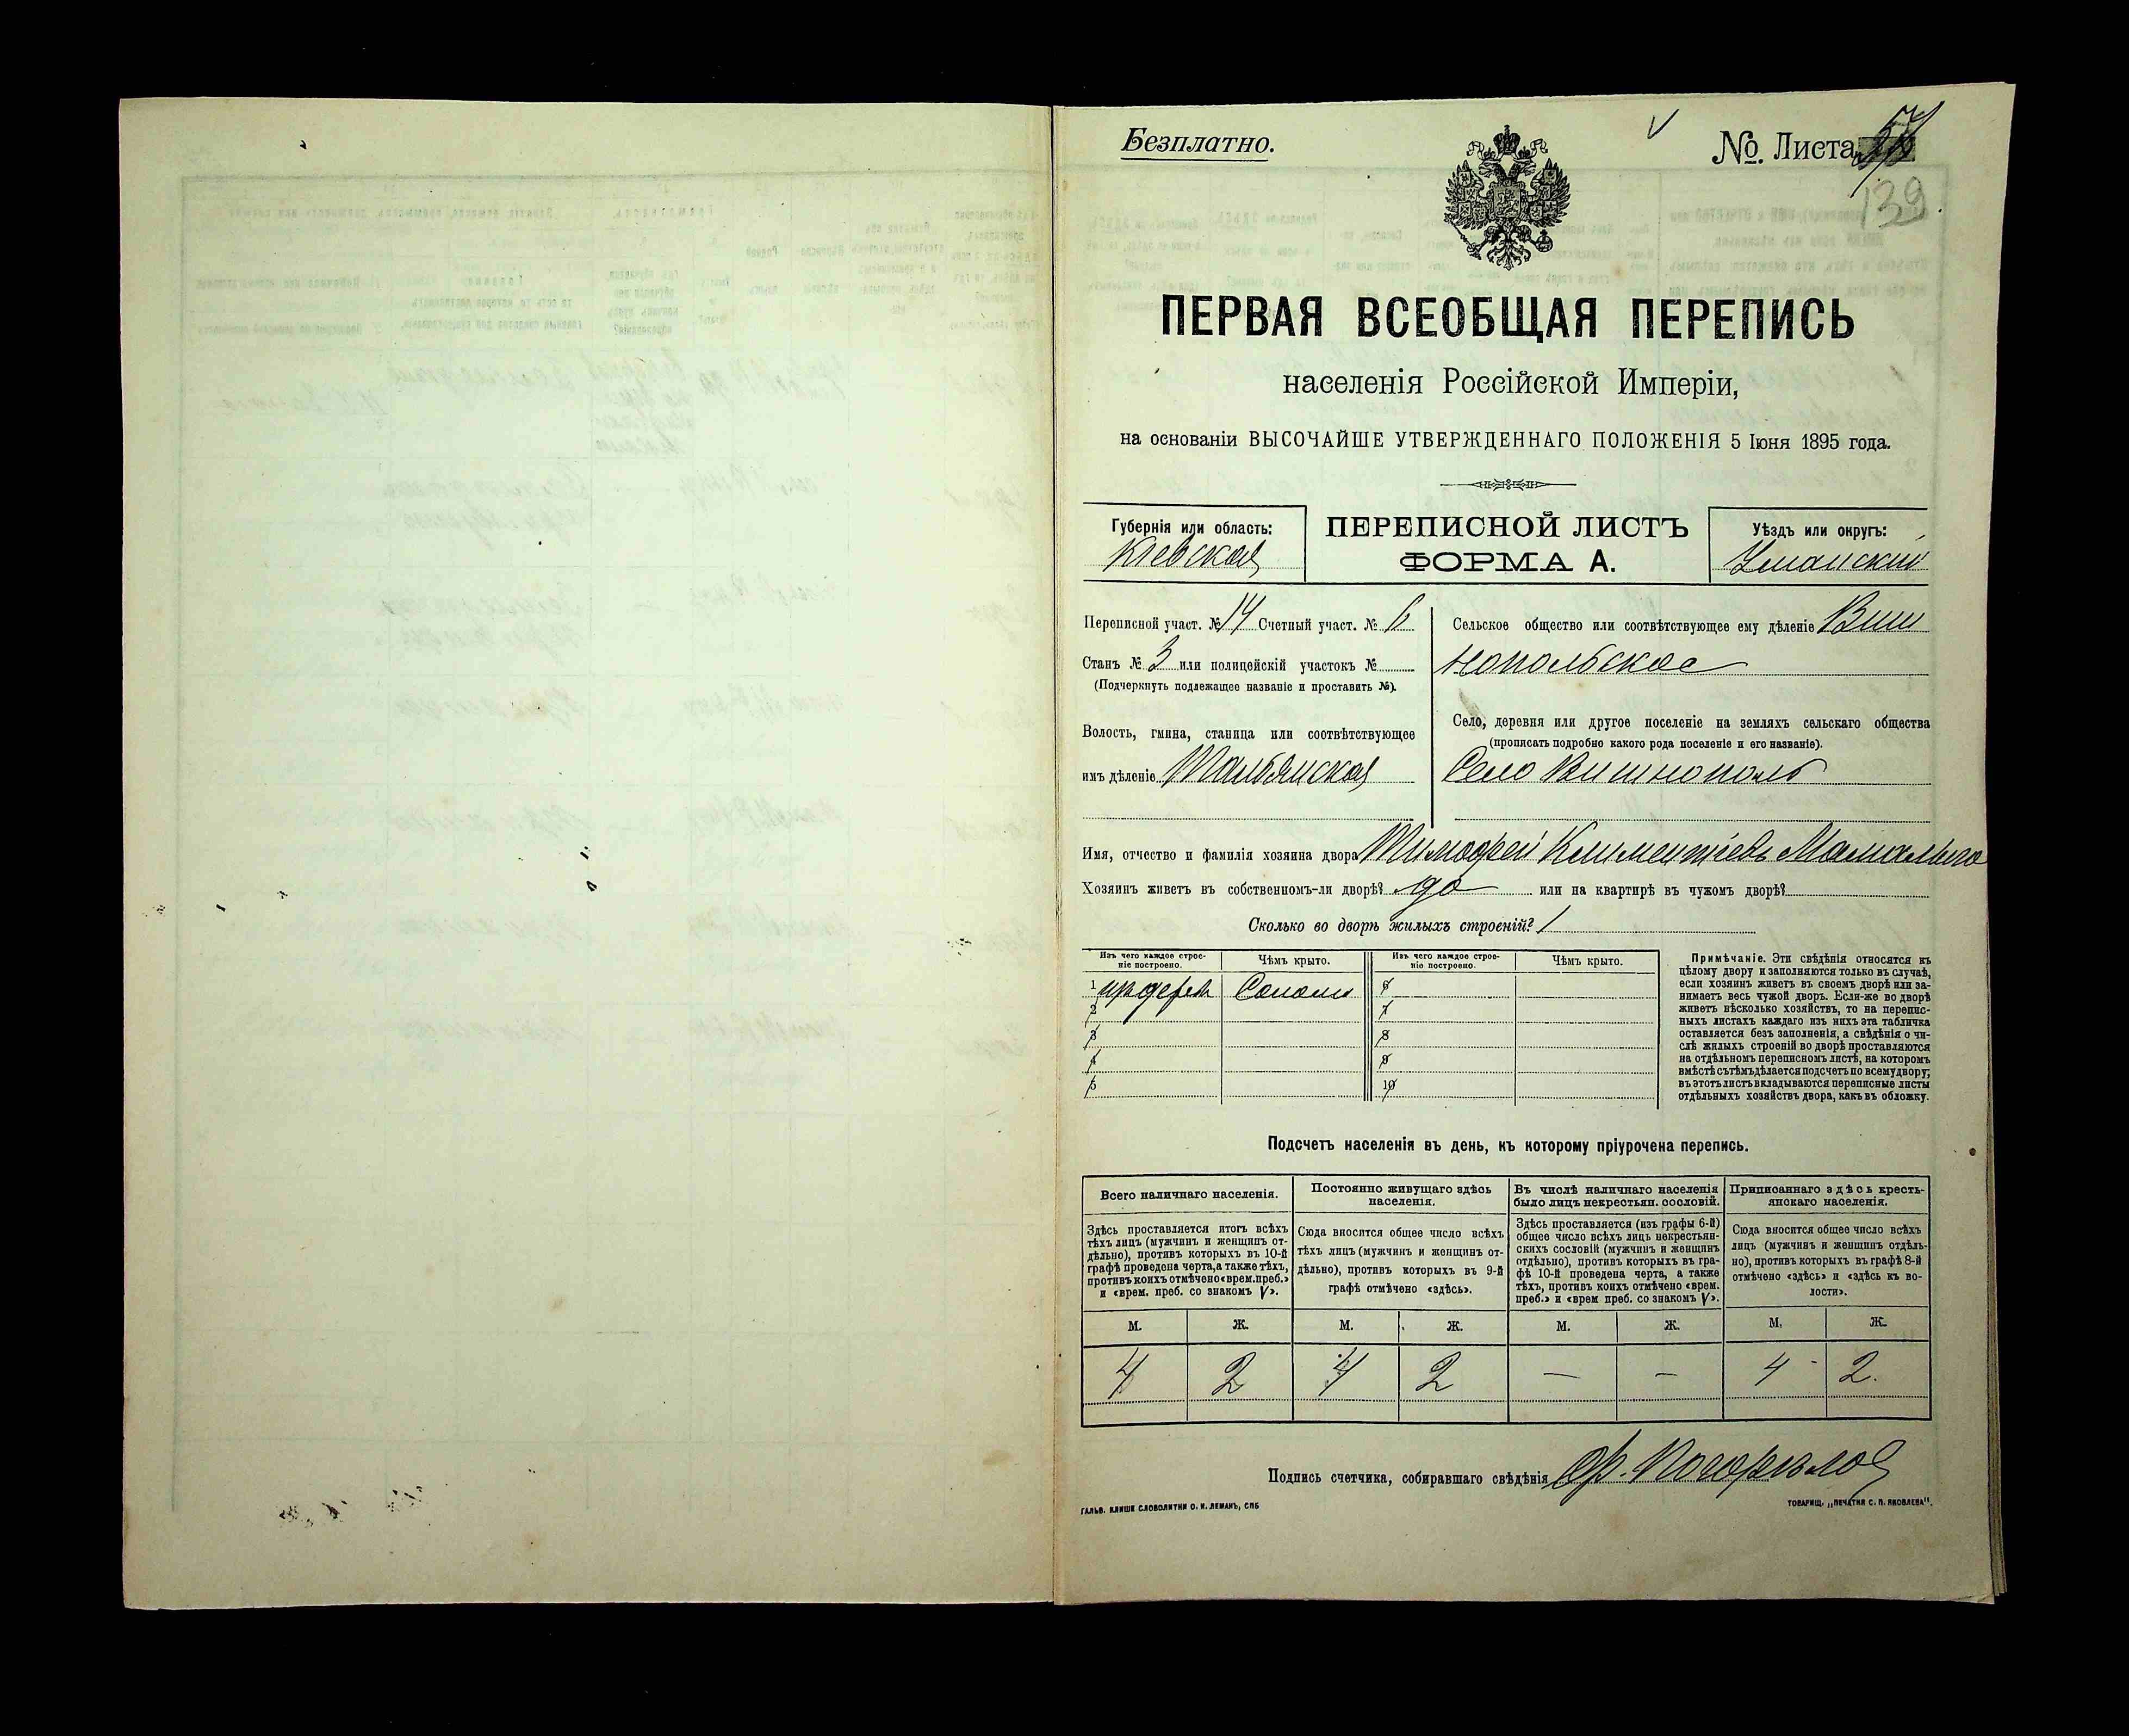 Безплатно.
№. Листа
139
ПЕРВАЯ ВСЕОБЩАЯ ПЕРЕПИСЬ
населенія Россійской Имперіи,
на основаніи ВЫСОЧАЙШЕ УТВЕРЖДЕННАГО ПОЛОЖЕНІЯ 5 Іюня 1895 года.
Губернія или область:
Кіевская
ПЕРЕПИСНОЙ ЛИСТЪ
ФОРМА А.
Уѣздъ или округъ:
Уманскій
Переписной участ. № 14 Счетный участ. № 6
Станъ № 3 или полицейскій участокъ №
(Подчеркнуть подлежащее названіе и проставить №).
Волость, гмина, станица или соотвѣтствующее
имъ дѣленіе Тальянская
Сельское общество или соотвѣтствующее ему дѣленіе Виш
нопольское
Село, деревня или другое поселеніе на земляхъ сельскаго общества
(прописать подробно какого рода поселеніе и его названіе).
Село Вишнополь
Имя, отчество и фамилія хозяина двора Тимофей Климентіевъ Мамалыга
Хозяинъ живетъ въ собственномъ-ли дворѣ? да или на квартирѣ въ чужомъ дворѣ?
Сколько во дворѣ жилыхъ строеній? 1
Изъ чего каждое строе-
ніе построено.
Чѣмъ крыто.
Изъ чего каждое строе-
ніе построено.
Чѣмъ крыто.
1 изъ дерева Солома 6
2 7
3 8
4 9
5 10
Примѣчаніе. Эти свѣдѣнія относятся къ
цѣлому двору и заполняются только въ случаѣ,
если хозяинъ живетъ въ своемъ дворѣ или за-
нимаетъ весь чужой дворъ. Если-же во дворѣ
живетъ нѣсколько хозяйствъ, то на перепис-
ныхъ листахъ каждаго изъ нихъ эта табличка
оставляется безъ заполненія, а свѣдѣнія о чи-
слѣ жилыхъ строеній во дворѣ проставляются
на отдѣльномъ переписномъ листѣ, на которомъ
вмѣстѣ съ тѣмъ дѣлается подсчетъ по всему двору;
въ этотъ листъ вкладываются переписные листы
отдѣльныхъ хозяйствъ двора, какъ въ обложку.
Подсчетъ населенія въ день, къ которому пріурочена перепись.
Всего наличнаго населенія.
Здѣсь проставляется итогъ всѣхъ
тѣхъ лицъ (мужчинъ и женщинъ от-
дѣльно), противъ которыхъ въ 10-й
графѣ проведена черта, а также тѣхъ,
противъ коихъ отмѣчено «врем. преб.»
и «врем. преб. со знакомъ V».
Постоянно живущаго здѣсь
населенія.
Сюда вносится общее число всѣхъ
тѣхъ лицъ (мужчинъ и женщинъ от-
дѣльно), противъ которыхъ въ 9-й
графѣ отмѣчено «здѣсь».
Въ числѣ наличнаго населенія
было лицъ некрестьян. сословій.
Здѣсь проставляется (изъ графы 6-й)
общее число всѣхъ лицъ некрестьян-
скихъ сословій (мужчинъ и женщинъ
отдѣльно), противъ которыхъ въ гра-
фѣ 10-й проведена черта, а также
тѣхъ, противъ коихъ отмѣчено «врем.
преб.» и «врем преб. со знакомъ V».
Приписаннаго здѣсь кресть-
янскаго населенія.
Сюда вносится общее число всѣхъ
лицъ (мужчинъ и женщинъ отдѣль-
но), противъ которыхъ въ графѣ 8-й
отмѣчено «здѣсь» и «здѣсь къ во-
лости».
М. Ж. М. Ж. М. Ж. М. Ж.
4 2 4 2 — — 4 2.
Подпись счетчика, собиравшаго свѣдѣнія
ГАЛЬВ. КЛИШЕ СЛОВОЛИТНИ О. И. ЛЕМАНЪ, СПБ
ТОВАРИЩ. „ПЕЧАТНЯ С. П. ЯКОВЛЕВА".